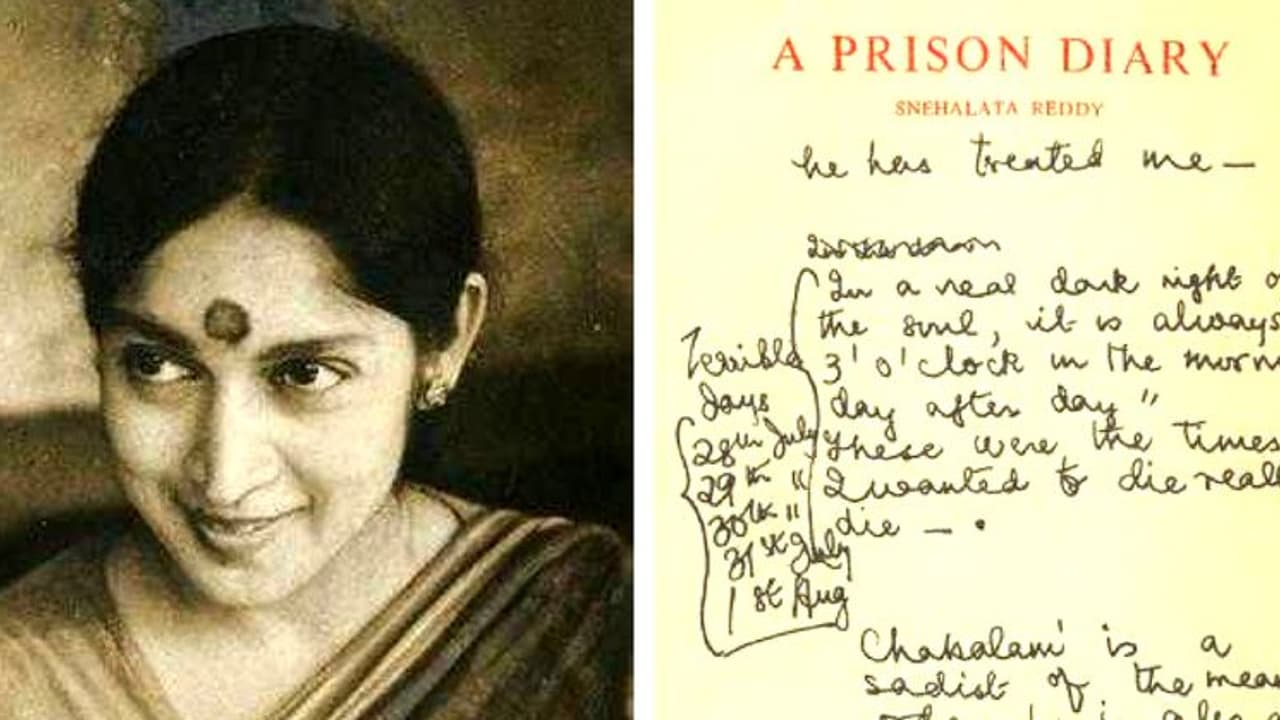 A PRISON DIARY
SNEHALATA REDDY
he has treated me —
In a real dark night o
the soul, it is always
3' o' clock in the morn
day after day"
These were the times
I wanted to die reall
die — .
Terrible
days
28th July
29th "
30th "
31st July
1st Aug
Chakalani is a
sadist of the mea